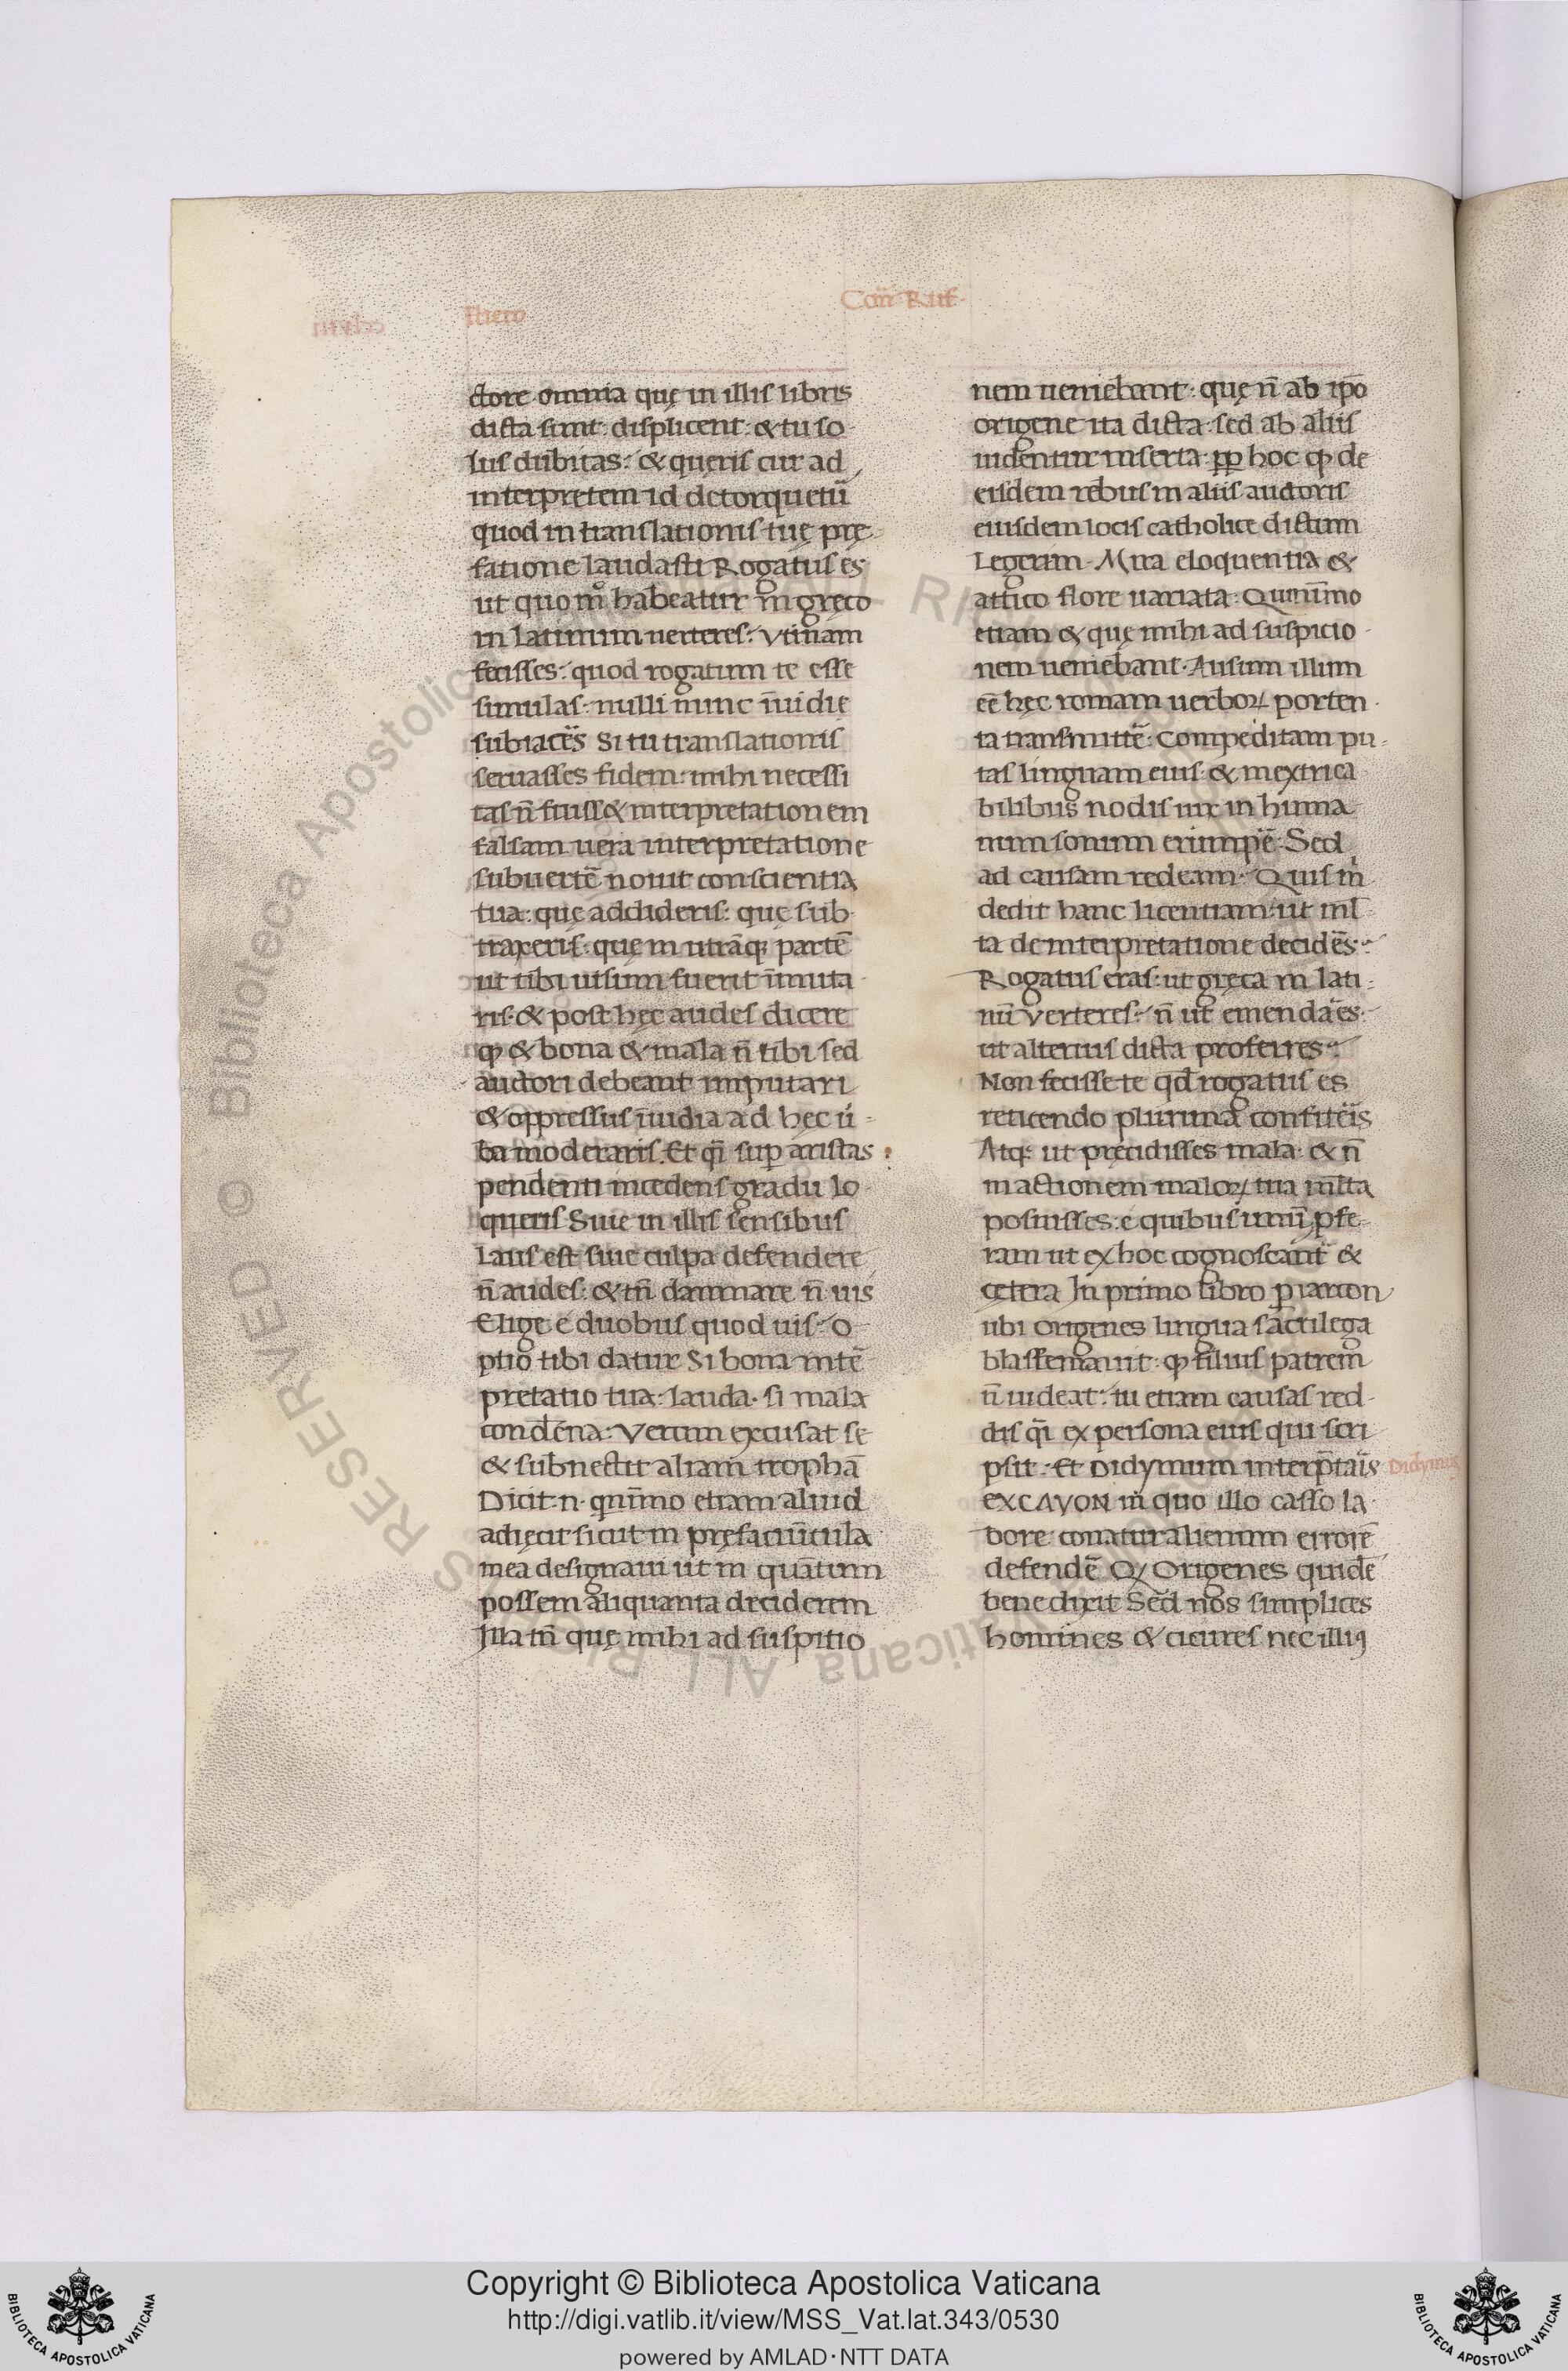 Hiero
Con̄ Ruf
ctore omnia quę in illis libris
dicta sunt: displicent: & tu so
lus dubitas: & queris cur ad
interpretem id detorquetũ
quod in translationis tuę prę
fatione laudasti Rogatus es
ut quom̊ habeatur in gręco
in latinum uerteres: Vtinam
fecisses: quod rogatum te esse
simulas: nulli nunc īuidię
subiacēs Si tu translationis
seruasses fidem: mihi necessi
tas n̄ fuiss& interpretationem
falsam uera interpretatione
subuertē nouit conscientia
tua: quę addideris: quę sub
traxeris: quę in utrāq; partē
ut tibi uisum fuerit īmuta
ris: & post hęc audes dicere
qp & bona & mala n̄ tibi sed
auctori debeant imputari
& oppressus īuidia ad hęc ū
ba moderaris. Et q̄i sup aristas
pendenti incedens gradu lo
queris Siue in illis sensibus
laus est siue culpa defendere
n̄ audes: & tn̄ damnare n̄ uis
Elige e duobus quod uis: O
ptio tibi datur Si bona intē
pretatio tua: lauda. si mala
condēna: Verum excusat se
& subnectit aliam trophā
Dicit. n. quīmo etiam aliud
adięcit sicut in pręfatiūcula
mea designaui ut in quantum
possem aliquanta deciderem
Illa tn̄ quę mihi ad suspitio
nem ueniebant: quę n̄ ab ip̄o
origene ita dicta: sed ab aliis
uidentur inserta: pp hoc qp de
eisdem rebus in aliis auctoris
eiusdem locis catholice dictum
Legeram. Mira eloquentia &
attico flore uariata: Quinīmo
etiam & quę mihi ad suspicio
nem ueniebant. Ausum illum
eē hęc romam uerboꝝ porten
ta transmittē: Compeditam pu
tas linguam eius: & inextrica
bilibus nodis uix in huma
num sonum erumpē. Sed
ad causam redeam. Quis m̄
dedit hanc licentiam: ut ml̄
ta de interpretatione decidēs:
Rogatus eras: ut gręca in lati
nū verteres: n̄ ut emendaēs:
ut alterius dicta proferres:
Non fecisse te qd̄ rogatus es
reticendo plurima confitēis
Atq; ut precidisses mala: & n̄
in actionem maloꝝ tua ml̄ta
posuisses: e quibus unū pfe
ram ut ex hoc cognoscant̄ &
cętera In primo libro p̄iarcon
ubi Origenes lingua sacrilega
blasfemauit: qp filius patrem
n̄ uideat: tu etiam causas red
dis q̄i ex persona eius qui scri
psit: Et Didymum interp̄taīs
Didymus
EXCAYON in̄ quo illo casso la
bore conatur alienum errorē
defendē Q Origenes quidē
bene dixit Sed nos simplices
homines & cicures nec illiꝰ
Copyright © Biblioteca Apostolica Vaticana
http://digi.vatlib.it/view/MSS_Vat.lat.343/0530
powered by AMLAD·NTT DATA